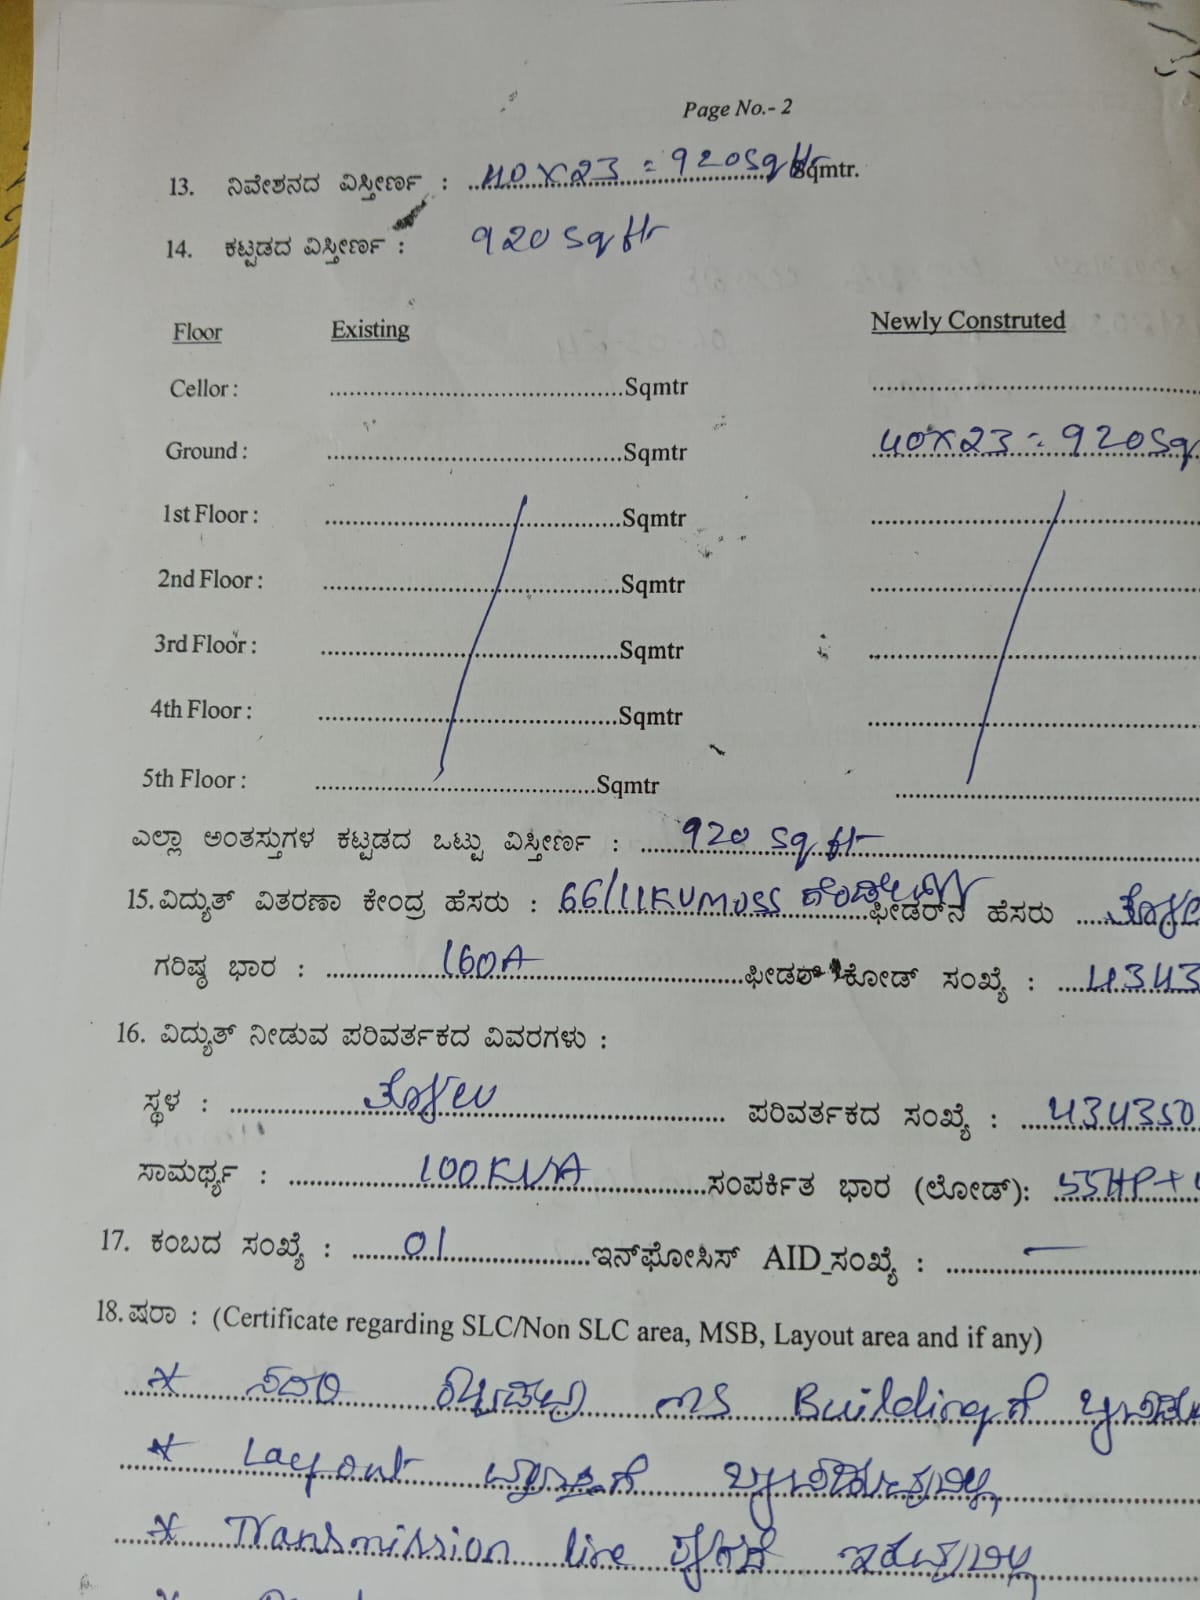 Page No.- 2
13. ನಿವೇಶನದ ವಿಸ್ತೀರ್ಣ : 40X23 = 920 sq ft Sqmtr.
14. ಕಟ್ಟಡದ ವಿಸ್ತೀರ್ಣ : 920 sq ft
Floor Existing Newly Construted
Cellor : Sqmtr
Ground : Sqmtr 40X23 = 920 sq
1st Floor : Sqmtr
2nd Floor : Sqmtr
3rd Floor : Sqmtr
4th Floor : Sqmtr
5th Floor : Sqmtr
ಎಲ್ಲಾ ಅಂತಸ್ತುಗಳ ಕಟ್ಟಡದ ಒಟ್ಟು ವಿಸ್ತೀರ್ಣ : 920 sq ft
15. ವಿದ್ಯುತ್ ವಿತರಣಾ ಕೇಂದ್ರ ಹೆಸರು : 66/11KV MUSS ಫೀಡರ್‌ನ ಹೆಸರು
ಗರಿಷ್ಠ ಭಾರ : 160A ಫೀಡರ್ ಕೋಡ್ ಸಂಖ್ಯೆ : 4343
16. ವಿದ್ಯುತ್ ನೀಡುವ ಪರಿವರ್ತಕದ ವಿವರಗಳು :
ಸ್ಥಳ : ಪರಿವರ್ತಕದ ಸಂಖ್ಯೆ : 434350
ಸಾಮರ್ಥ್ಯ : 100KVA ಸಂಪರ್ಕಿತ ಭಾರ (ಲೋಡ್): 55HP+
17. ಕಂಬದ ಸಂಖ್ಯೆ : 01 ಇನ್‌ಫೋಸಿಸ್ AID_ಸಂಖ್ಯೆ : —
18. ಷರಾ : (Certificate regarding SLC/Non SLC area, MSB, Layout area and if any)
* ಸದರಿ ಕಟ್ಟಡವು MS Buildingಗೆ
* Layout ವ್ಯಾಪ್ತಿಗೆ ಒಳಪಡುವುದಿಲ್ಲ
* Transmission line ಇರುವುದಿಲ್ಲ